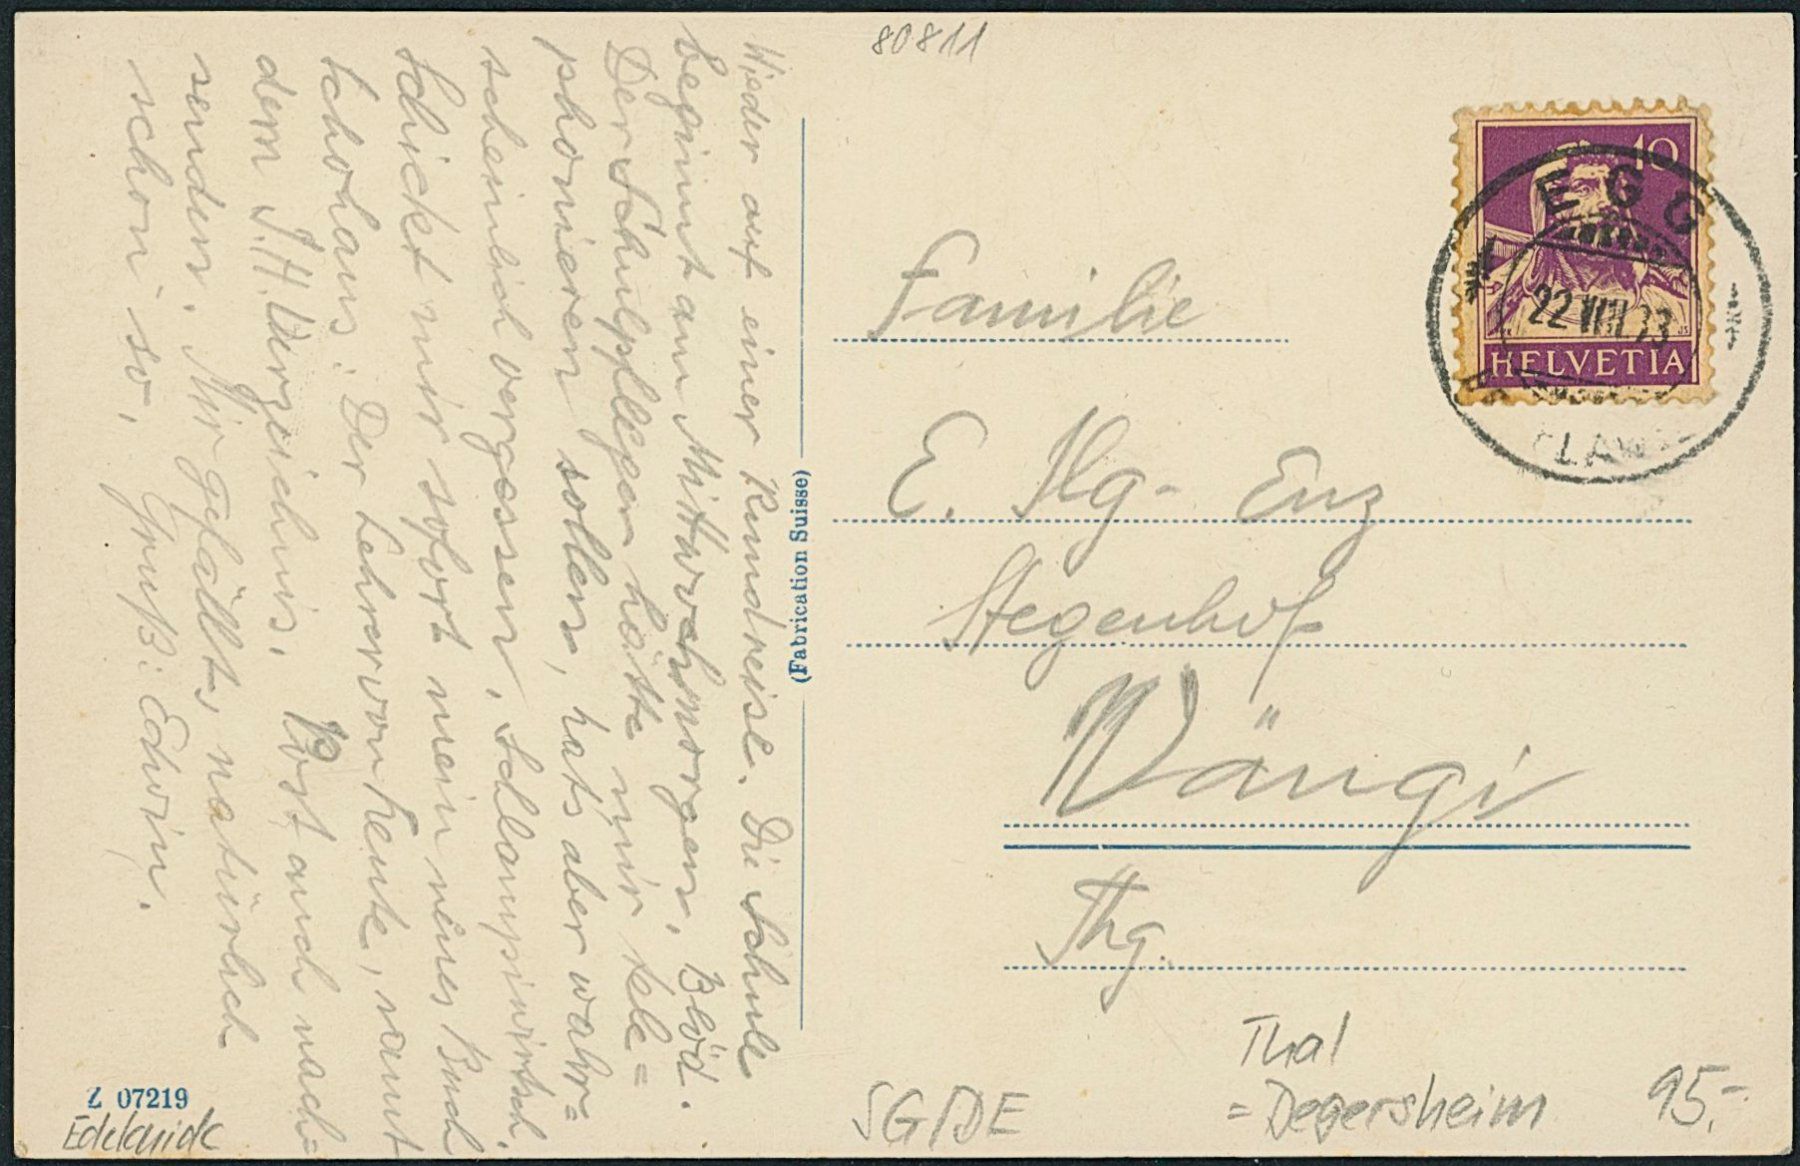 80811
Wieder auf einer Rundreise. Die Schule
beginnt am Mittwochmorgen. Blöd.
Der Schulpfleger hätte mir tele=
phonieren sollen, hats aber wahr=
scheinlich vergessen.
schickt mir sofort mein neues Buch
Der Lehrer von heute, samt
dem J.H. Verzeichnis. Post auch nach=
senden. Mir gefällts natürlich
schon so.
Gruß: Edwin.
(Fabrication Suisse)
10
HELVETIA
EGG
22 VIII 33
FLAWIL
Familie
E. Ilg-Enz
Stegenhof
Wängi
Thg.
Thal
= Degersheim
95.-
SG/DE
Z 07219